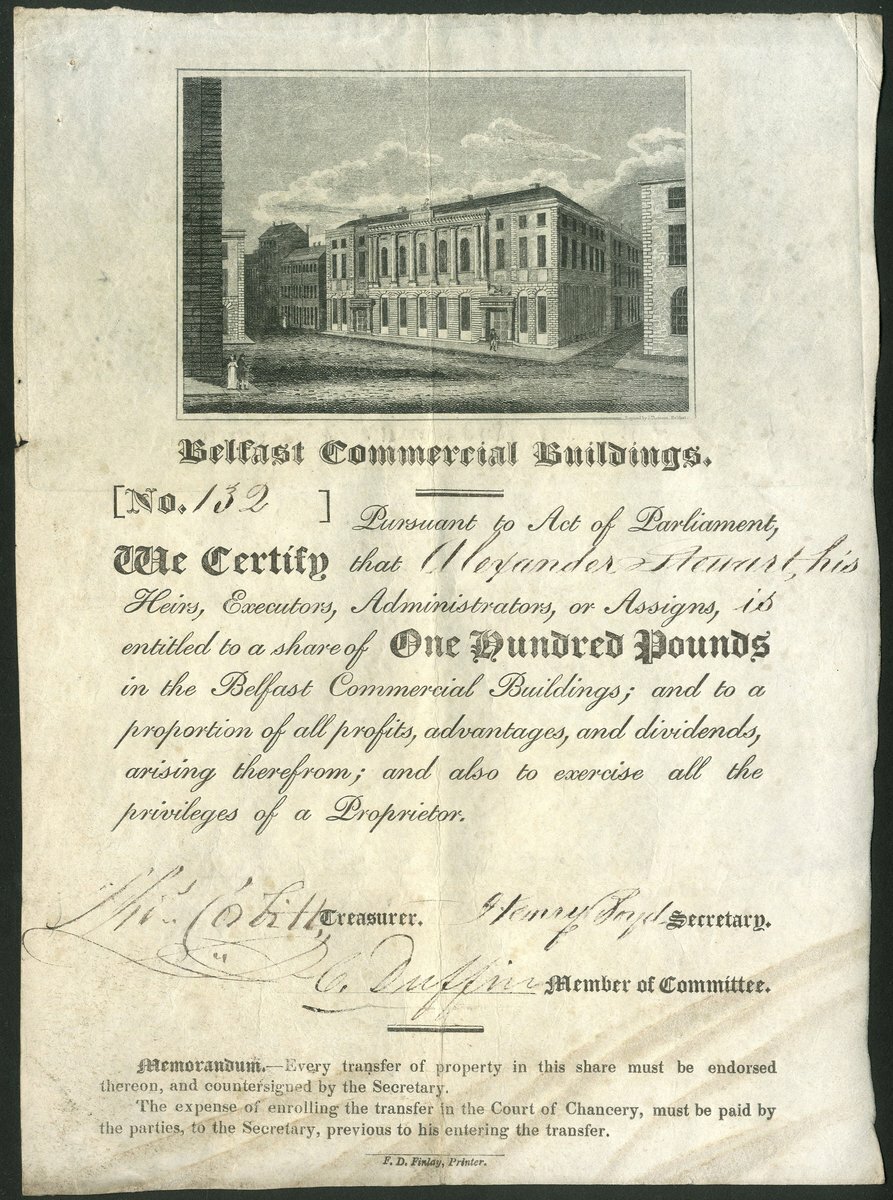 Belfast Commercial Buildings.
[No. 132 ]
Pursuant to Act of Parliament,
We Certify that Alexander Stewart, his
Heirs, Executors, Administrators, or Assigns, is
entitled to a share of One Hundred Pounds
in the Belfast Commercial Buildings; and to a
proportion of all profits, advantages, and dividends,
arising therefrom; and also to exercise all the
privileges of a Proprietor.
Thos. Corbitt, Treasurer. Henry Boyd Secretary.
C. Duffin Member of Committee.
Memorandum.—Every transfer of property in this share must be endorsed
thereon, and countersigned by the Secretary.
The expense of enrolling the transfer in the Court of Chancery, must be paid by
the parties, to the Secretary, previous to his entering the transfer.
F. D. Finlay, Printer.